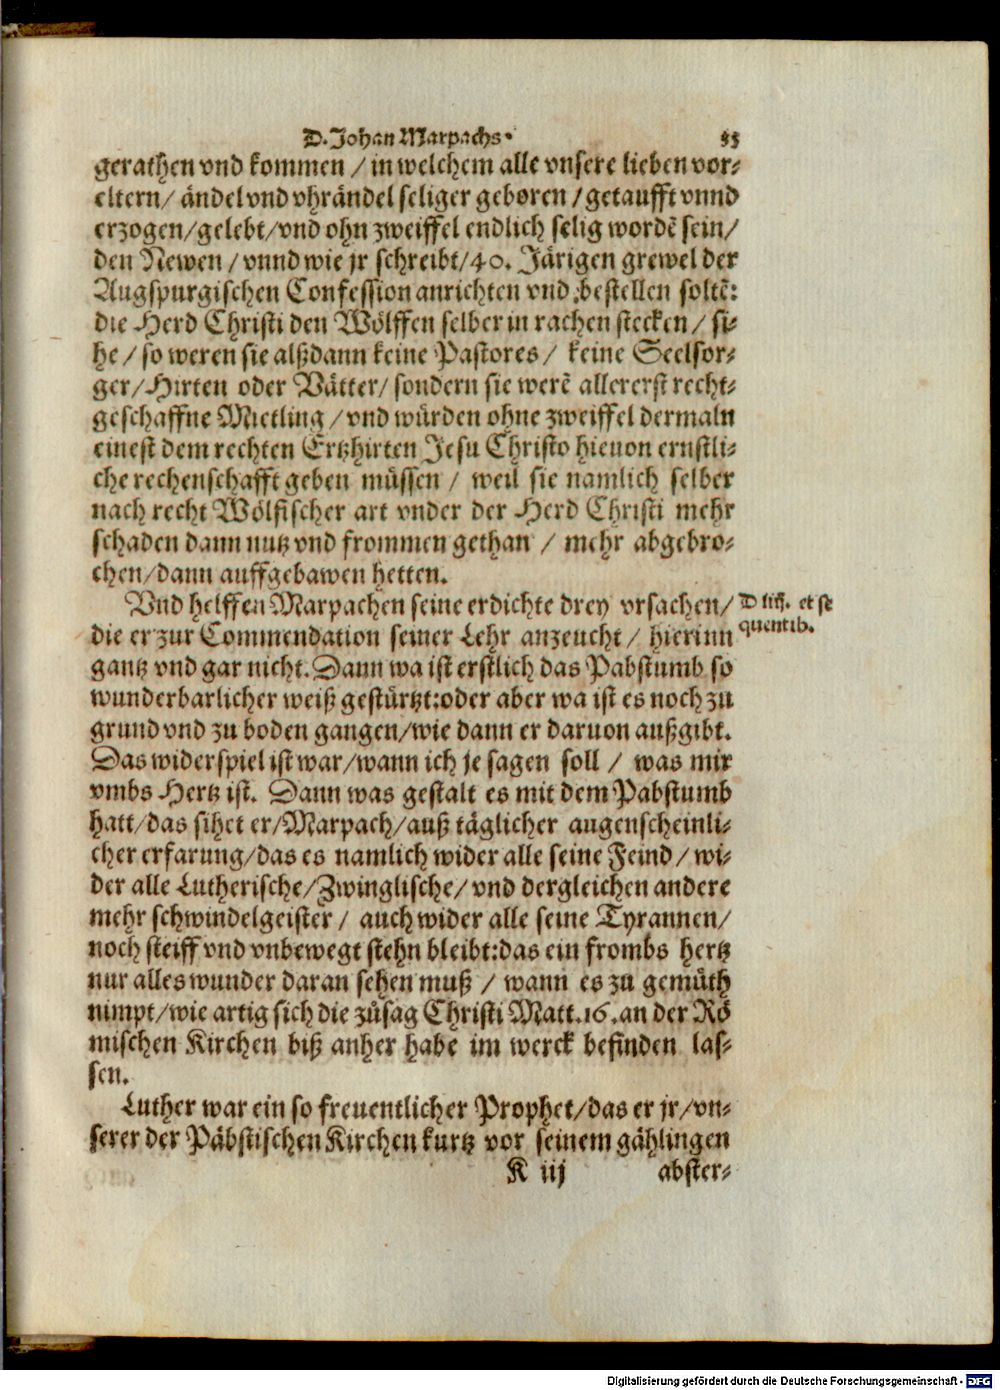 D. Johan Marpachs.
gerathen vnd kommen / in welchem alle vnsere lieben vor⸗
eltern/ ändel vnd vhrändel seliger geboren / getaufft vnnd
erzogen/gelebt/vnd ohn zweiffel endlich selig wordē sein/
den Newen / vnnd wie jr schreibt/40. Järigen grewel der
Augspurgischen Confession anrichten vnd bestellen soltē:
die Herd Christi den Wölffen selber in rachen stecken / si⸗
he / so weren sie alßdann keine Pastores / keine Seelsor⸗
ger/Hirten oder Vätter/ sondern sie werē allererst recht⸗
geschaffne Mietling / vnd würden ohne zweiffel dermaln
einest dem rechten Ertzhirten Jesu Christo hieuon ernstli⸗
che rechenschafft geben müssen / weil sie namlich selber
nach recht Wölfischer art vnder der Herd Christi mehr
schaden dann nutz vnd frommen gethan / mehr abgebro⸗
chen/dann auffgebawen hetten.
Vnd helffen Marpachen seine erdichte drey vrsachen/
die er zur Commendation seiner Lehr anzeucht / hierinn
gantz vnd gar nicht. Dann wa ist erstlich das Pabstumb so
wunderbarlicher weiß gestürtzt:oder aber wa ist es noch zu
grund vnd zu boden gangen/wie dann er daruon außgibt.
Das widerspiel ist war/wann ich je sagen soll / was mir
vmbs Hertz ist. Dann was gestalt es mit dem Pabstumb
hatt/das sihet er/Marpach/auß täglicher augenscheinli⸗
cher erfarung/das es namlich wider alle seine Feind / wi⸗
der alle Lutherische/Zwinglische/ vnd dergleichen andere
mehr schwindelgeister / auch wider alle seine Tyrannen/
noch steiff vnd vnbewegt stehn bleibt:das ein frombs hertz
nur alles wunder daran sehen muß / wann es zu gemüth
nimpt/wie artig sich die zůsag Christi Matt.16.an der Rö
mischen Kirchen biß anher habe im werck befinden las⸗
sen.
Luther war ein so freuentlicher Prophet/das er jr/vn⸗
serer der Päbstischen Kirchen kurtz vor seinem gählingen
K iij abster⸗
et se
quentib.
Digitalisierung gefördert durch die Deutsche Forschungsgemeinschaft - DFG